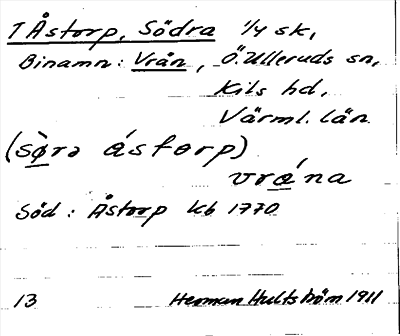 T Åstorp, Södra 1/4 sk,
Binamn: Vrån, Ö. Ulleruds sn,
Kils hd,
Värml. län
(sø̀rə ás torp)
vrǽna
Söd: Åstorp kb 1770
13 Herman Hultström 1911